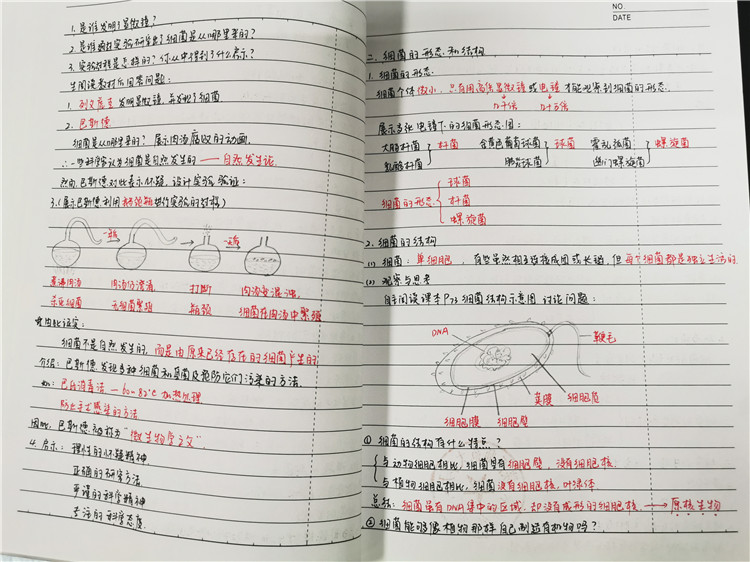 1. 是谁发明了显微镜?
2. 是谁通过实验研究出了细菌是从哪里来的?
3. 实验过程是怎样的? 你从中得到了什么启示?
生阅读教材后回答问题:
1. 列文虎克发明显微镜, 并发现了细菌
2. 巴斯德
细菌是从哪里来的? 展示肉汤腐败的动画.
∴一些科学家认为细菌是自然发生的 —— 自然发生论.
然而, 巴斯德对此表示怀疑, 设计实验验证:
3. (展示巴斯德利用鹅颈瓶进行实验的过程)
煮沸肉汤 肉汤仍澄清, 打断 肉汤变混浊,
杀死细菌 无细菌繁殖 瓶颈 细菌在肉汤中繁殖
由此证实:
细菌不是自然发生的, 而是由原来已经存在的细菌产生的
介绍: 巴斯德发现多种细菌和真菌及预防它们污染的方法.
如: 巴氏消毒法 — 60~85℃ 加热处理
防止手术感染的方法
因此, 巴斯德被称为“微生物学之父”
4. 启示: 理性的怀疑精神
正确的研究方法
严谨的科学精神
专注的科学态度
NO.
DATE
二. 细菌的形态和结构
1. 细菌的形态.
细菌个体微小, 只有用高倍显微镜或电镜才能观察到细菌的形态.
几千倍 几十万倍
展示各种电镜下的细菌形态图:
大肠杆菌 杆菌 金黄色葡萄球菌 球菌 霍乱弧菌 螺旋菌
乳酸杆菌 肺炎球菌 幽门螺旋菌
球菌
细菌的形态 杆菌
螺旋菌
2. 细菌的结构
(1) 细菌: 单细胞, 有些虽然相互连接成团或长链, 但每个细菌都是独立生活的.
(2) 观察与思考
自主阅读课本P73细菌结构示意图 讨论问题:
DNA 鞭毛
荚膜 细胞质
细胞膜 细胞壁
① 细菌的结构有什么特点?
与动物细胞相比, 细菌具有细胞壁, 没有细胞核.
与植物细胞相比, 细菌没有细胞核, 叶绿体
总结: 细菌虽有DNA集中的区域, 却没有成形的细胞核 → 原核生物
② 细菌能够像植物那样自己制造有机物吗?